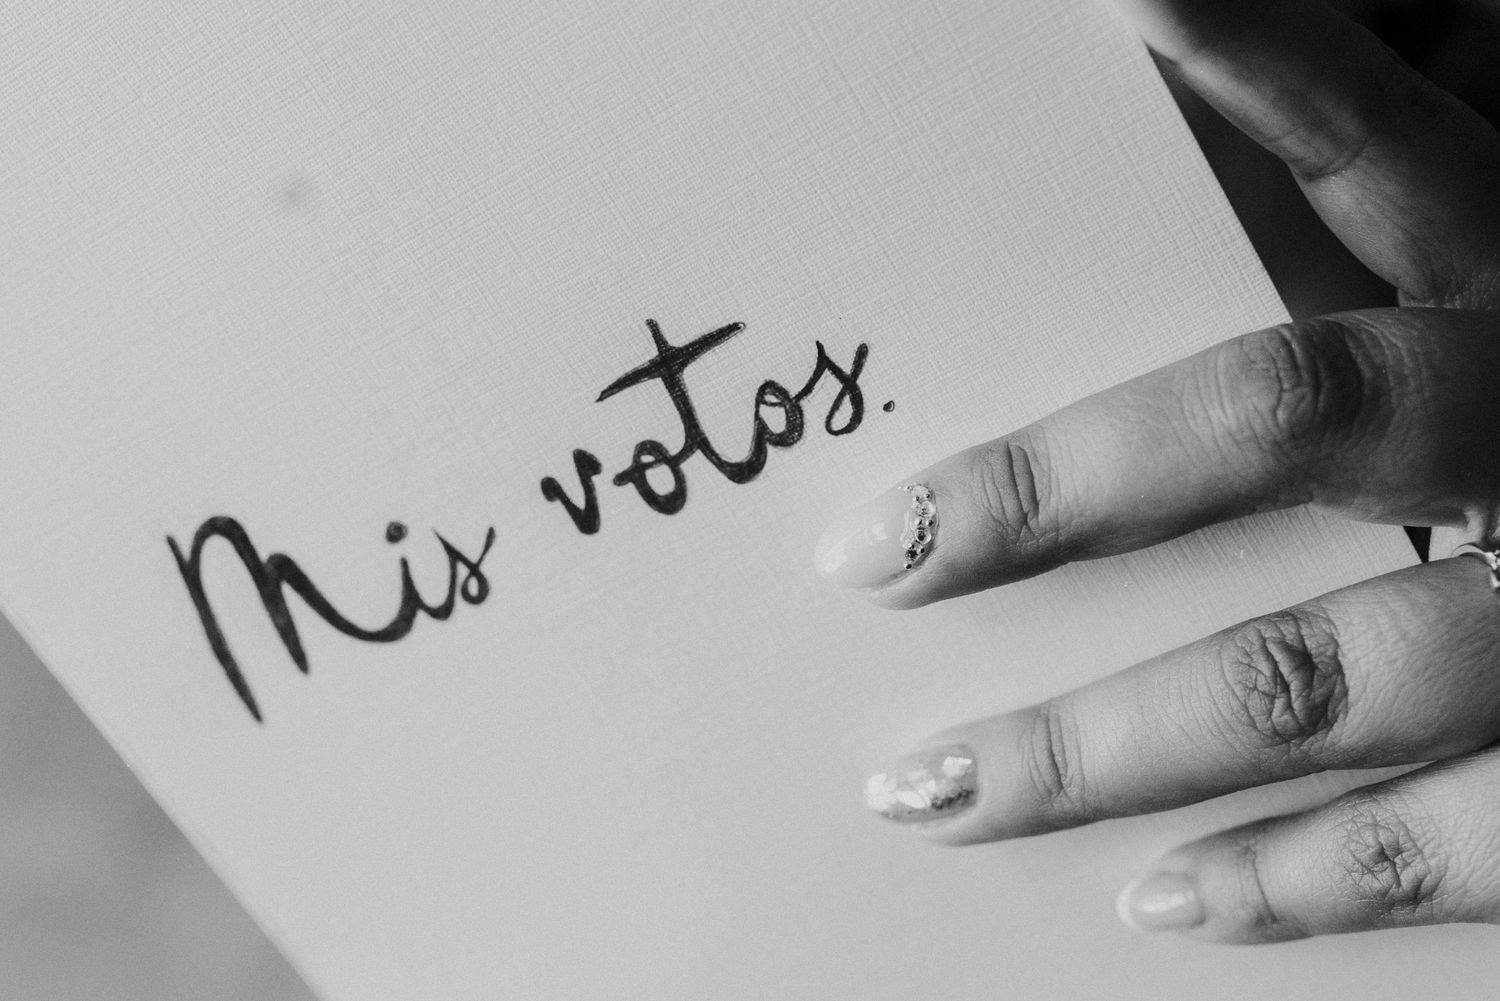 Mis votos.